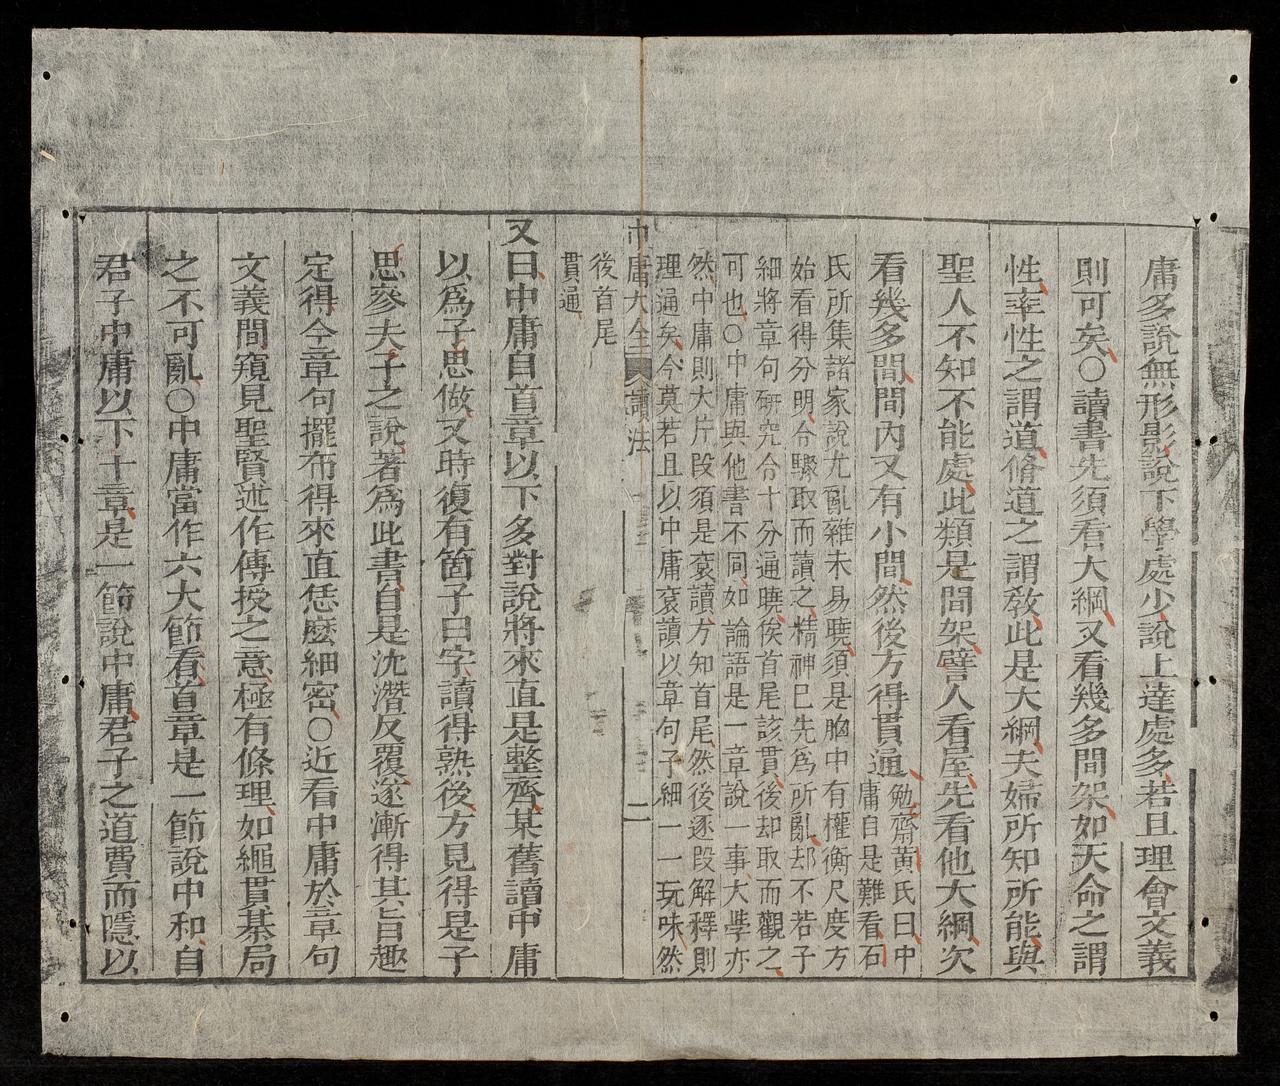 庸多說無形影說下學處少說上達處多若且理會文義
則可矣○讀書先須看大綱又看幾多間架如天命之謂
性率性之謂道脩道之謂敎此是大綱夫婦所知所能與
聖人不知不能處此類是間架譬人看屋先看他大綱次
看幾多間間內又有小間然後方得貫通
勉齋黃氏曰中
庸自是難看石
氏所集諸家說尤亂雜未易曉須是胸中有權衡尺度方
始看得分明合驟取而讀之精神已先爲所亂却不若子
細將章句硏究令十分通曉俟首尾該貫後却取而觀之
可也○中庸與他書不同如論語是一章說一事大學亦
然中庸則大片段須是袞讀方知首尾然後逐段解釋則
理通矣今莫若且以中庸袞讀以章句子細一一玩味然
後首尾
貫通
中庸大全 讀法 二
又曰中庸自首章以下多對說將來直是整齊某舊讀中庸
以爲子思做又時復有箇子曰字讀得熟後方見得是子
思參夫子之說著爲此書自是沈潛反覆遂漸得其旨趣
定得今章句擺布得來直恁麼細密○近看中庸於章句
文義間窺見聖賢述作傳授之意極有條理如繩貫棊局
之不可亂○中庸當作六大節看首章是一節說中和自
君子中庸以下十章是一節說中庸君子之道費而隱以